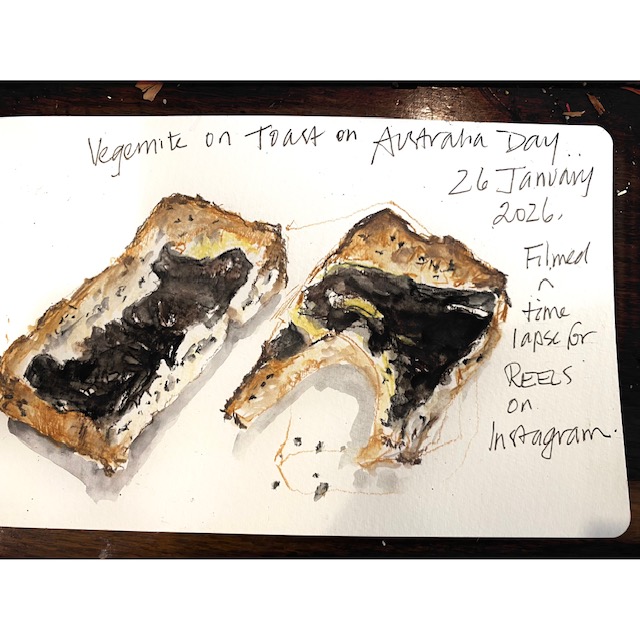 Vegemite on Toast on Australia Day..
26 January
2026.
Filmed
n
time
lapse for
REELS
on
Instagram.